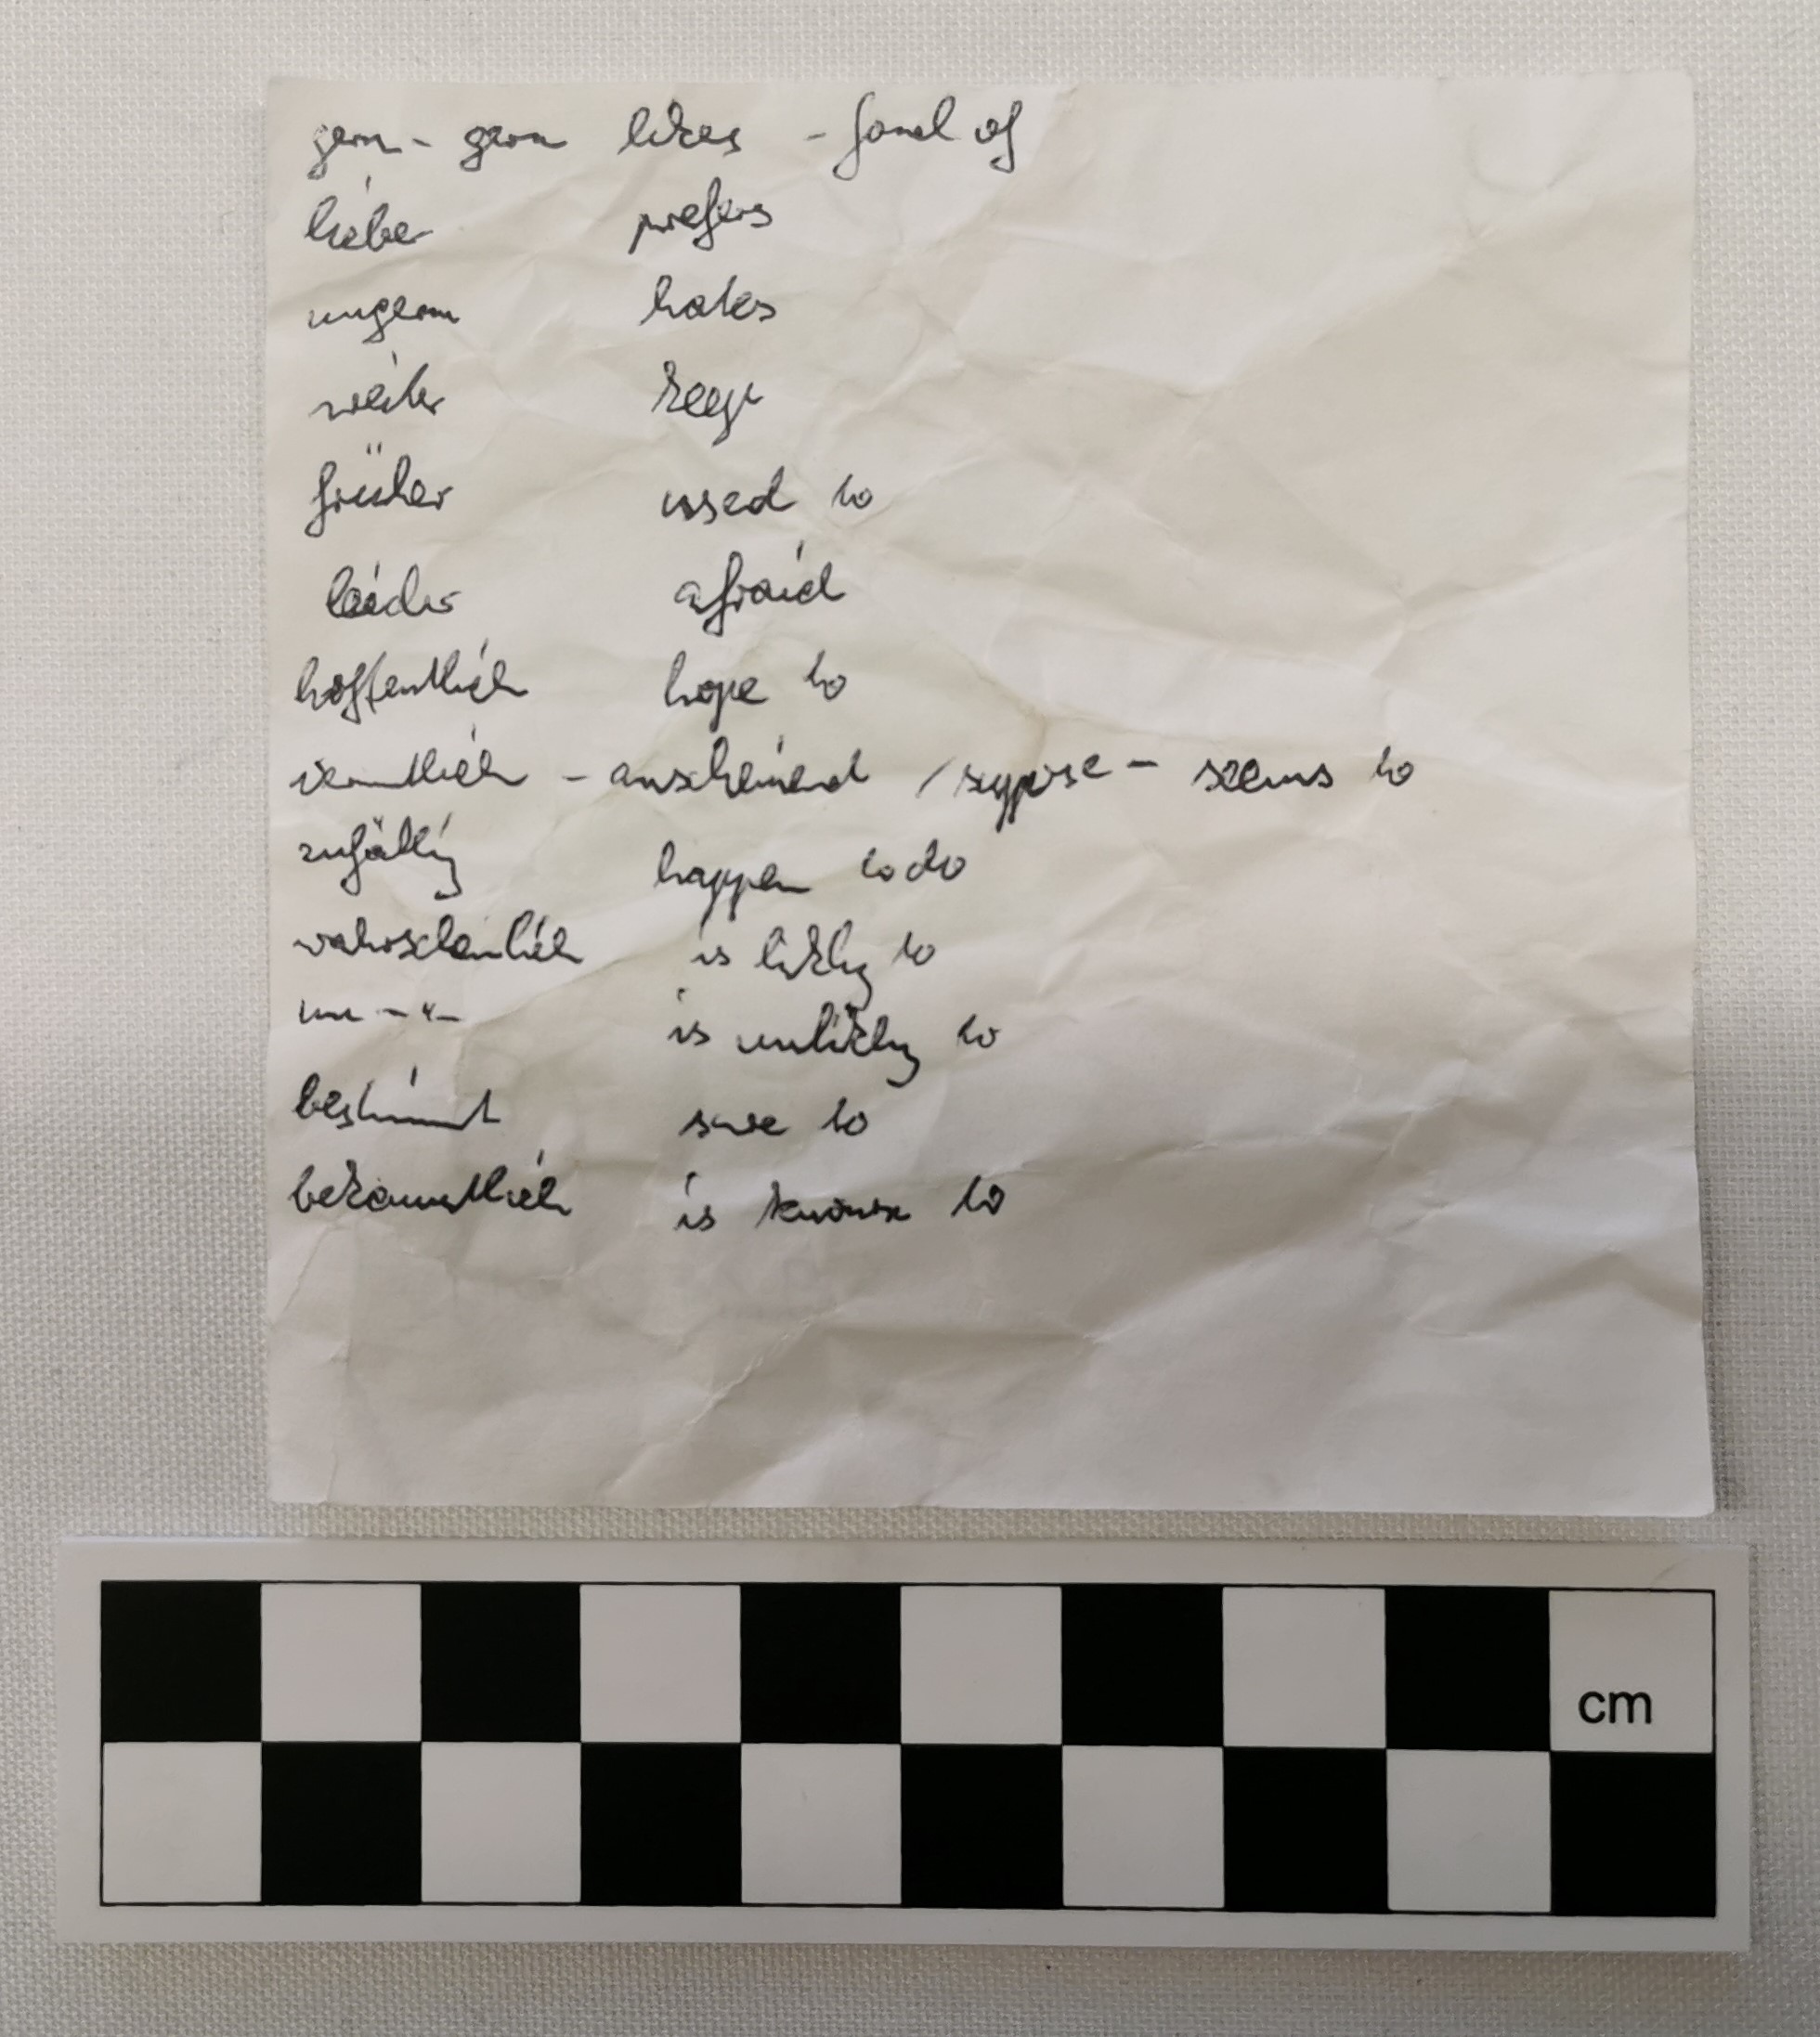 gern - gern likes - fond of
lieber prefers
ungern hates
weiter keep
früher used to
leider afraid
hoffentlich hope to
vermutlich - anscheinend / suppose - seems to
zufällig happen to do
wahrscheinlich is likely to
un - " - is unlikely to
bestimmt sure to
bekanntlich is known to
cm